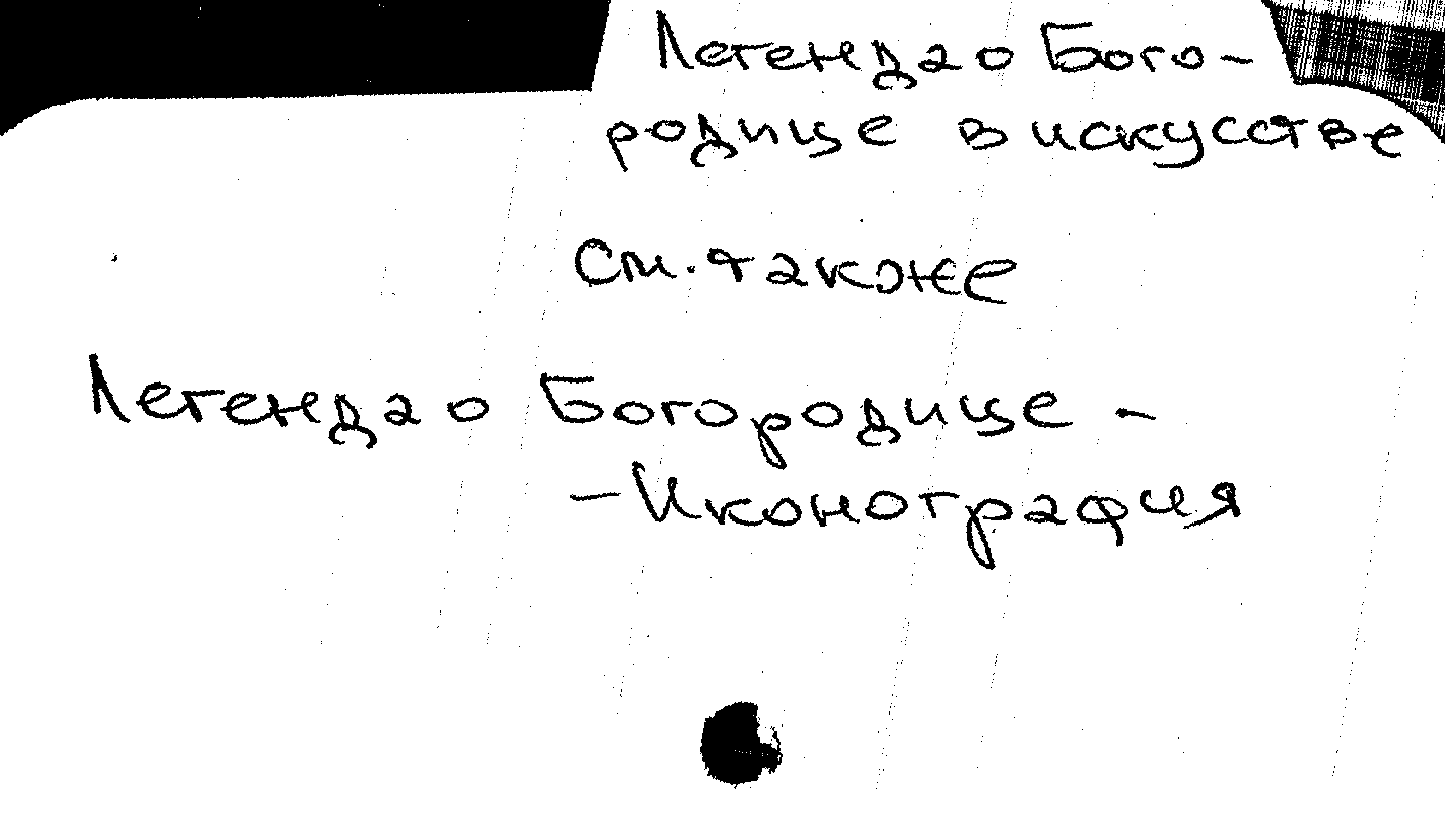 Легенда о Бого-
родице в искусстве
См. также
Легенда о Богородице -
- Иконография